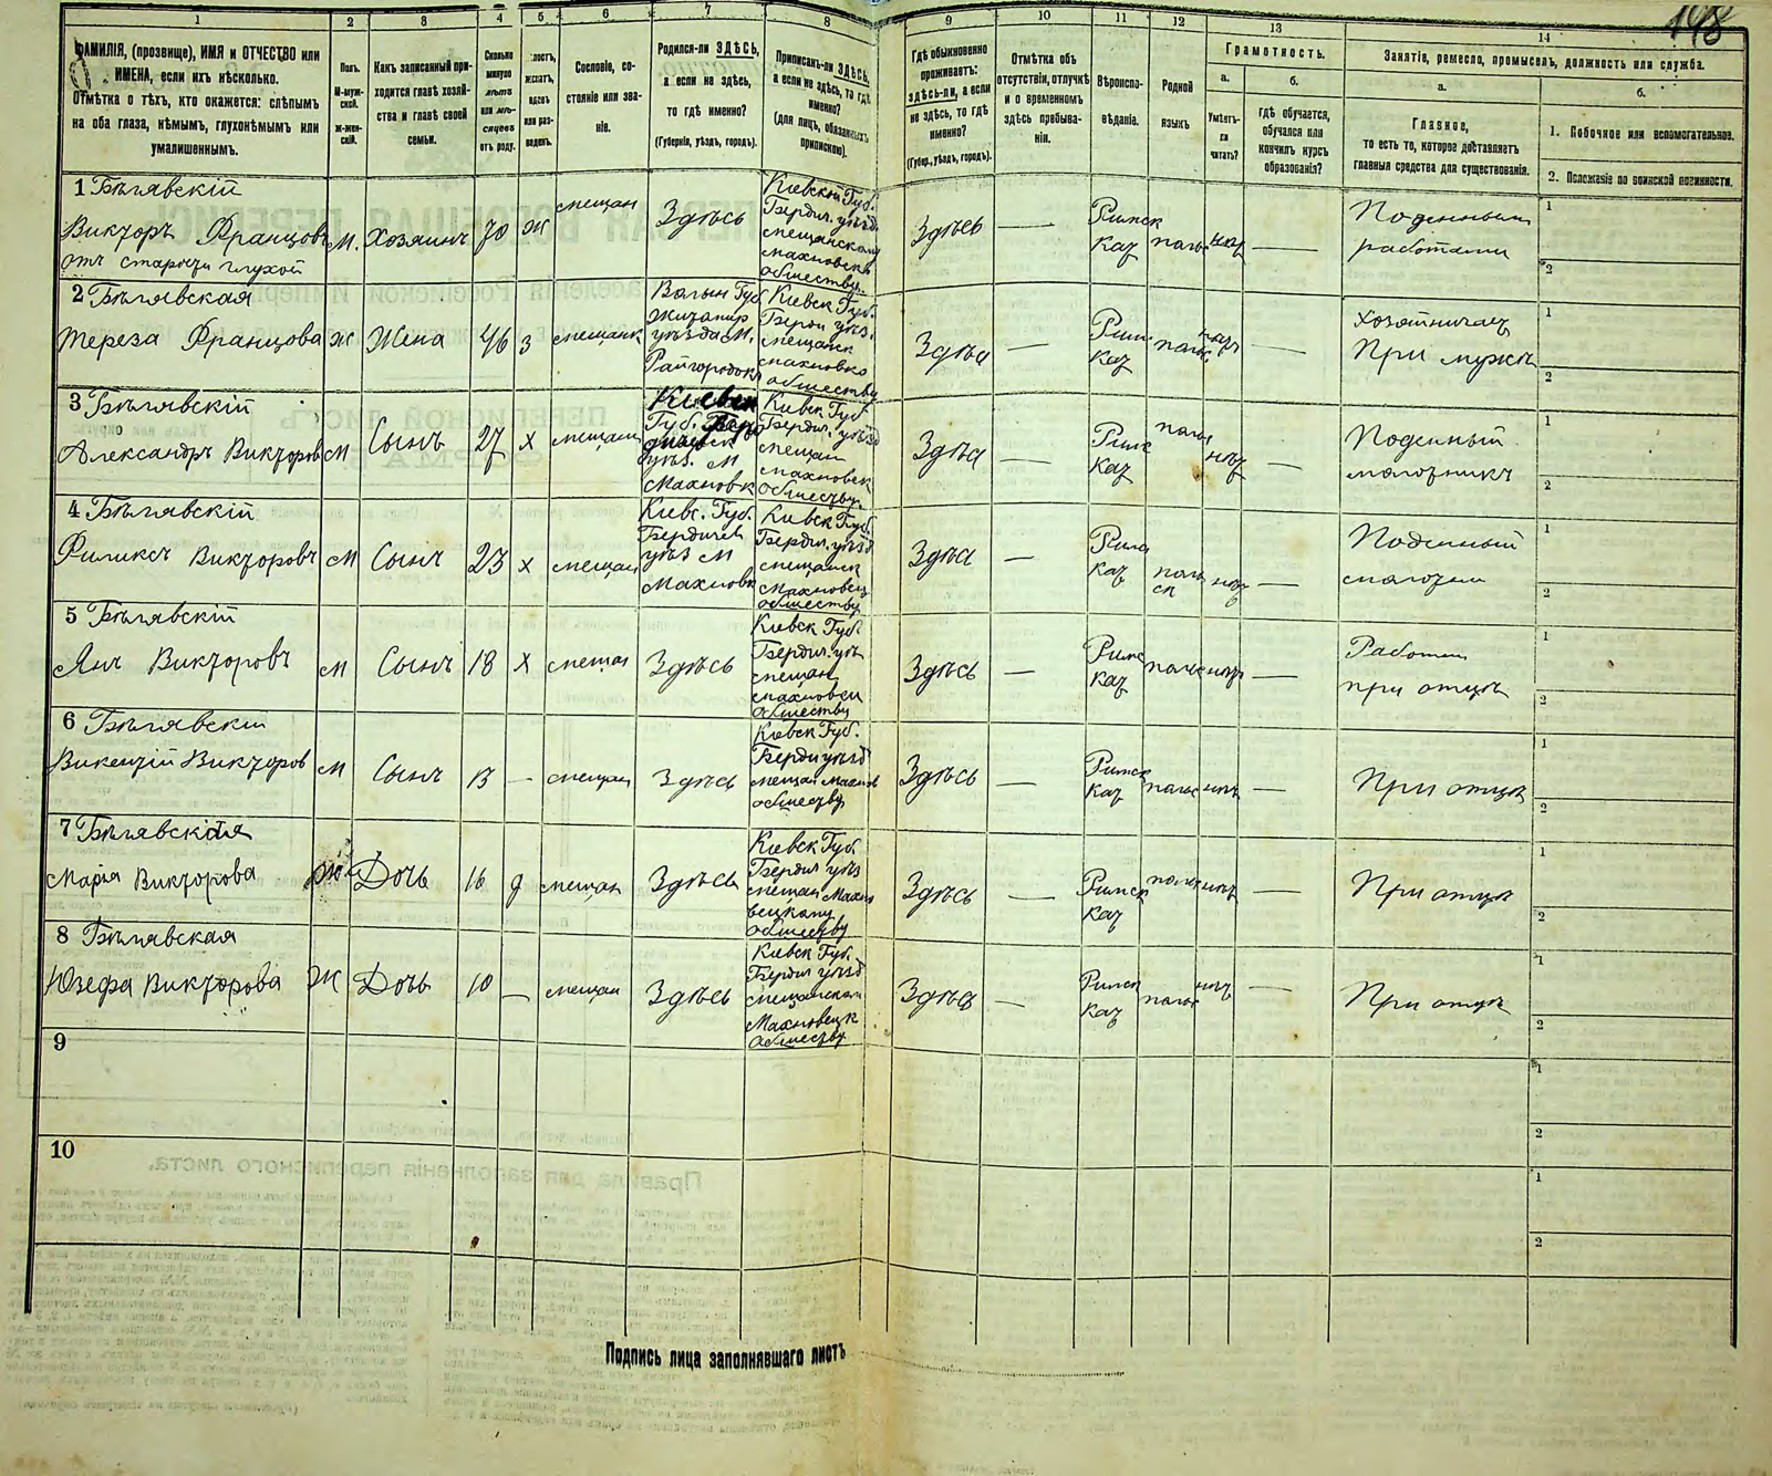 148
1 2 3 4 5 6 7 8 9 10 11 12 13 14
ФАМИЛІЯ, (прозвище), ИМЯ и ОТЧЕСТВО или
ИМЕНА, если ихъ нѣсколько.
Отмѣтка о тѣхъ, кто окажется: слѣпымъ
на оба глаза, нѣмымъ, глухонѣмымъ или
умалишеннымъ.
Полъ.
М-муж-
ской.
Ж-жен-
скій.
Какъ записанный при-
ходится главѣ хозяй-
ства и главѣ своей
семьи.
Сколько
минуло
лѣтъ
или мѣ-
сяцевъ
отъ роду.
женатъ,
вдовъ
или раз-
веденъ.
Сословіе, со-
стояніе или зва-
ніе.
Родился-ли ЗДѢСЬ,
а если не здѣсь,
то гдѣ именно?
(Губернія, уѣздъ, городъ).
Приписанъ-ли ЗДѢСЬ,
а если не здѣсь, то гдѣ
именно?
(для лицъ, обязанныхъ
припискою).
Гдѣ обыкновенно
проживаетъ:
здѣсь-ли, а если
не здѣсь, то гдѣ
именно?
(Губер., уѣздъ, городъ).
Отмѣтка объ
отсутствіи, отлучкѣ
и о временномъ
здѣсь пребыва-
ніи.
Вѣроиспо-
вѣданіе.
Родной
языкъ
Грамотность.
а.
Умѣетъ-
ли
читать?
б.
Гдѣ обучается,
обучался или
кончилъ курсъ
образованія?
Занятіе, ремесло, промыселъ, должность или служба.
а.
Главное,
то есть то, которое доставляетъ
главныя средства для существованія.
б.
1. Побочное или вспомогательное.
2. Положеніе по воинской повинности.
1 Бѣлявскій
Викторъ Францовъ М. Хозяинъ 70 ж мещан Здѣсь
отъ старости глухой
Кіевской Губ.
Бердич. уѣзд
мещанскому
махновск
обществу
Здѣсь — Римск
кат польс нѣт —
Поденными
работами
1
2
2 Бѣлявская
Тереза Францова Ж Жена 46 з мещанк
Волын Губ
Житомир
уѣзда М.
Райгородок
Кіевск Губ.
Берди уѣз.
мещанск
махновко
обществу
Здѣсь — Рим
кат польс нѣт —
Хозяйничает
При мужѣ
1
2
3 Бѣлявскій
Александръ Викторовъ М Сынъ 27 х мещан
Кіевск
Губ. Бер
дичевск
уѣз. М
Махновк
Кіевск Губ
Бердич. уѣзд
мещан
махновск
обществу
Здѣсь — Римс
кат польс нѣт —
Поденный
молотникъ
1
2
4 Бѣлявскій
Филиксъ Викторовъ М Сынъ 23 х мещан
Кіевс. Губ.
Бердичев
уѣз М
Махновк
Кіевск Губ.
Бердич. уѣзд
мещанск
Махновец
обществу
Здѣсь — Римс
кат польс
ск нѣт —
Поденный
1
2
5 Бѣлявскій
Янъ Викторовъ М Сынъ 18 х мещан Здѣсь
Кіевск Губ
Бердич. уѣз
мещан
махновец
обществу
Здѣсь — Римс
кат польс нѣт —
Работат
при отцѣ
1
2
6 Бѣлявскій
Викентій Викторов М Сынъ 13 — мещан Здѣсь
Кіевск Губ.
Берди уѣзд
мещан махнов
обществу
Здѣсь — Римск
кат польс нѣт —
При отцѣ
1
2
7 Бѣлявская
Марія Викторова Ж Дочь 16 д мещан Здѣсь
Кіевск Губ
Бердич уѣз
мещан Махно
вецкому
обществу
Здѣсь — Римск
кат польс нѣт —
При отцѣ
1
2
8 Бѣлявская
Юзефа Викторова Ж Дочь 10 — мещан Здѣсь
Кіевск Губ.
Бердич уѣзд
мещанском
Махновецк
обществу
Здѣсь — Римск
кат польс нѣт —
При отцѣ
1
2
9
1
2
10
1
2
Подпись лица заполнявшаго листъ